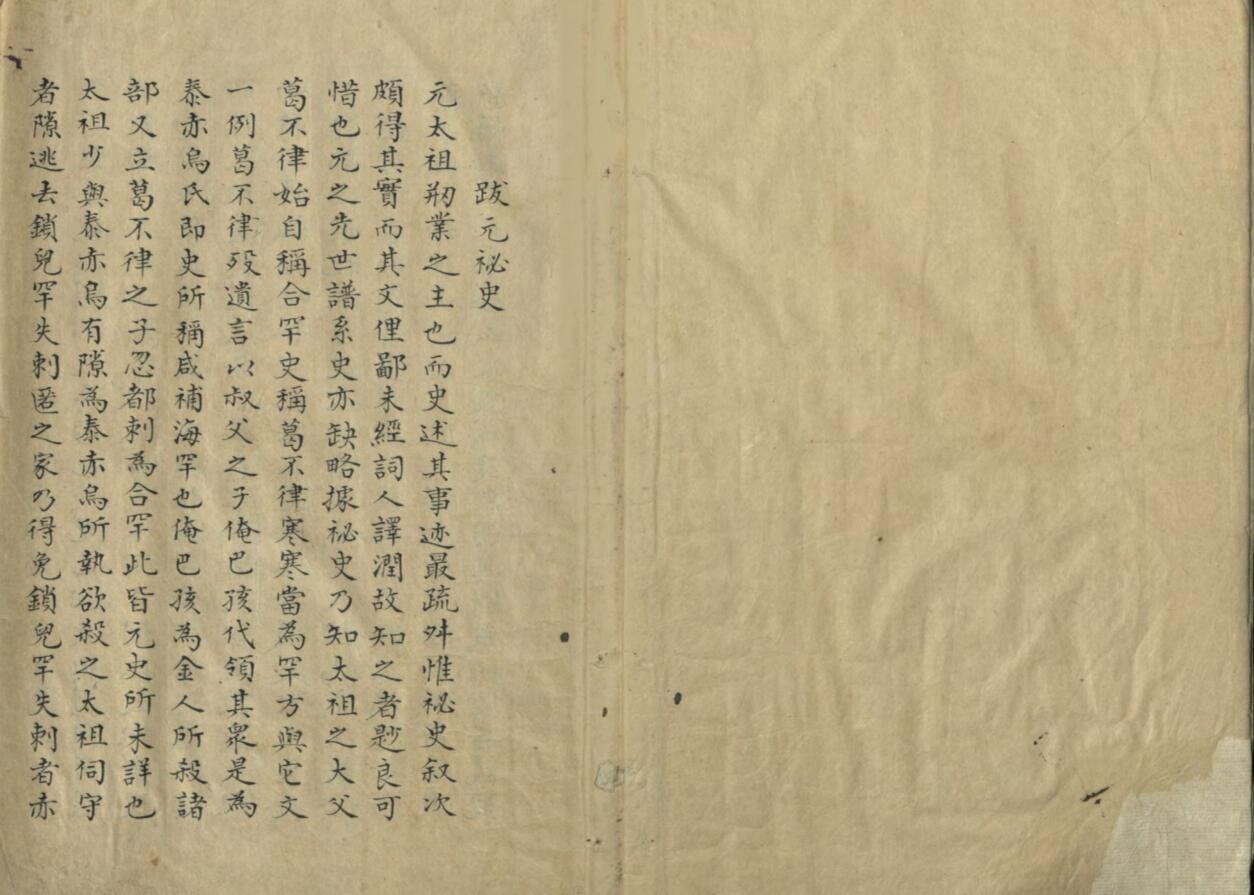 跋元祕史
元太祖刱業之主也而史述其事迹最疏舛惟祕史叙次
頗得其實而其文俚鄙未經詞人譯潤故知之者尟良可
惜也元之先世譜系史亦缺略據祕史乃知太祖之大父
葛不律始自稱合罕史稱葛不律寒寒當為罕方與它文
一例葛不律歿遺言以叔父之子俺巴孩代領其眾是為
泰赤烏氏即史所稱咸補海罕也俺巴孩為金人所殺諸
部又立葛不律之子忽都剌為合罕此皆元史所未詳也
太祖少與泰赤烏有隙為泰赤烏所執欲殺之太祖伺守
者隙逃去鎖兒罕失剌匿之家乃得免鎖兒罕失剌者赤